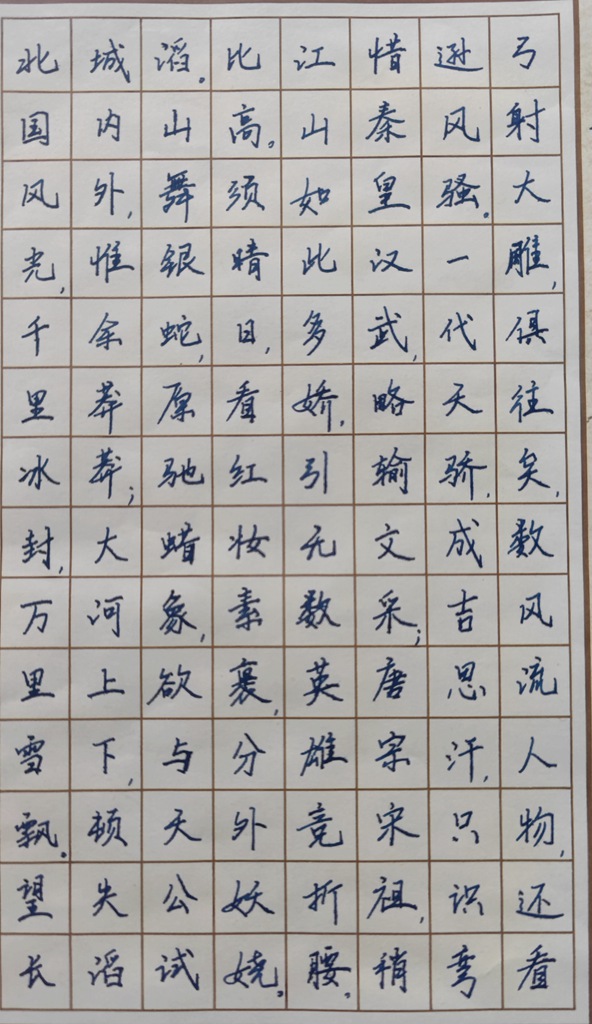 北国风光,千里冰封,万里雪飘。望长
城内外,惟余莽莽;大河上下,顿失滔
滔。山舞银蛇,原驰蜡象,欲与天公试
比高。须晴日,看红妆素裹,分外妖娆。
江山如此多娇,引无数英雄竞折腰。
惜秦皇汉武,略输文采;唐宗宋祖,稍
逊风骚。一代天骄,成吉思汗,只识弯
弓射大雕,俱往矣,数风流人物,还看